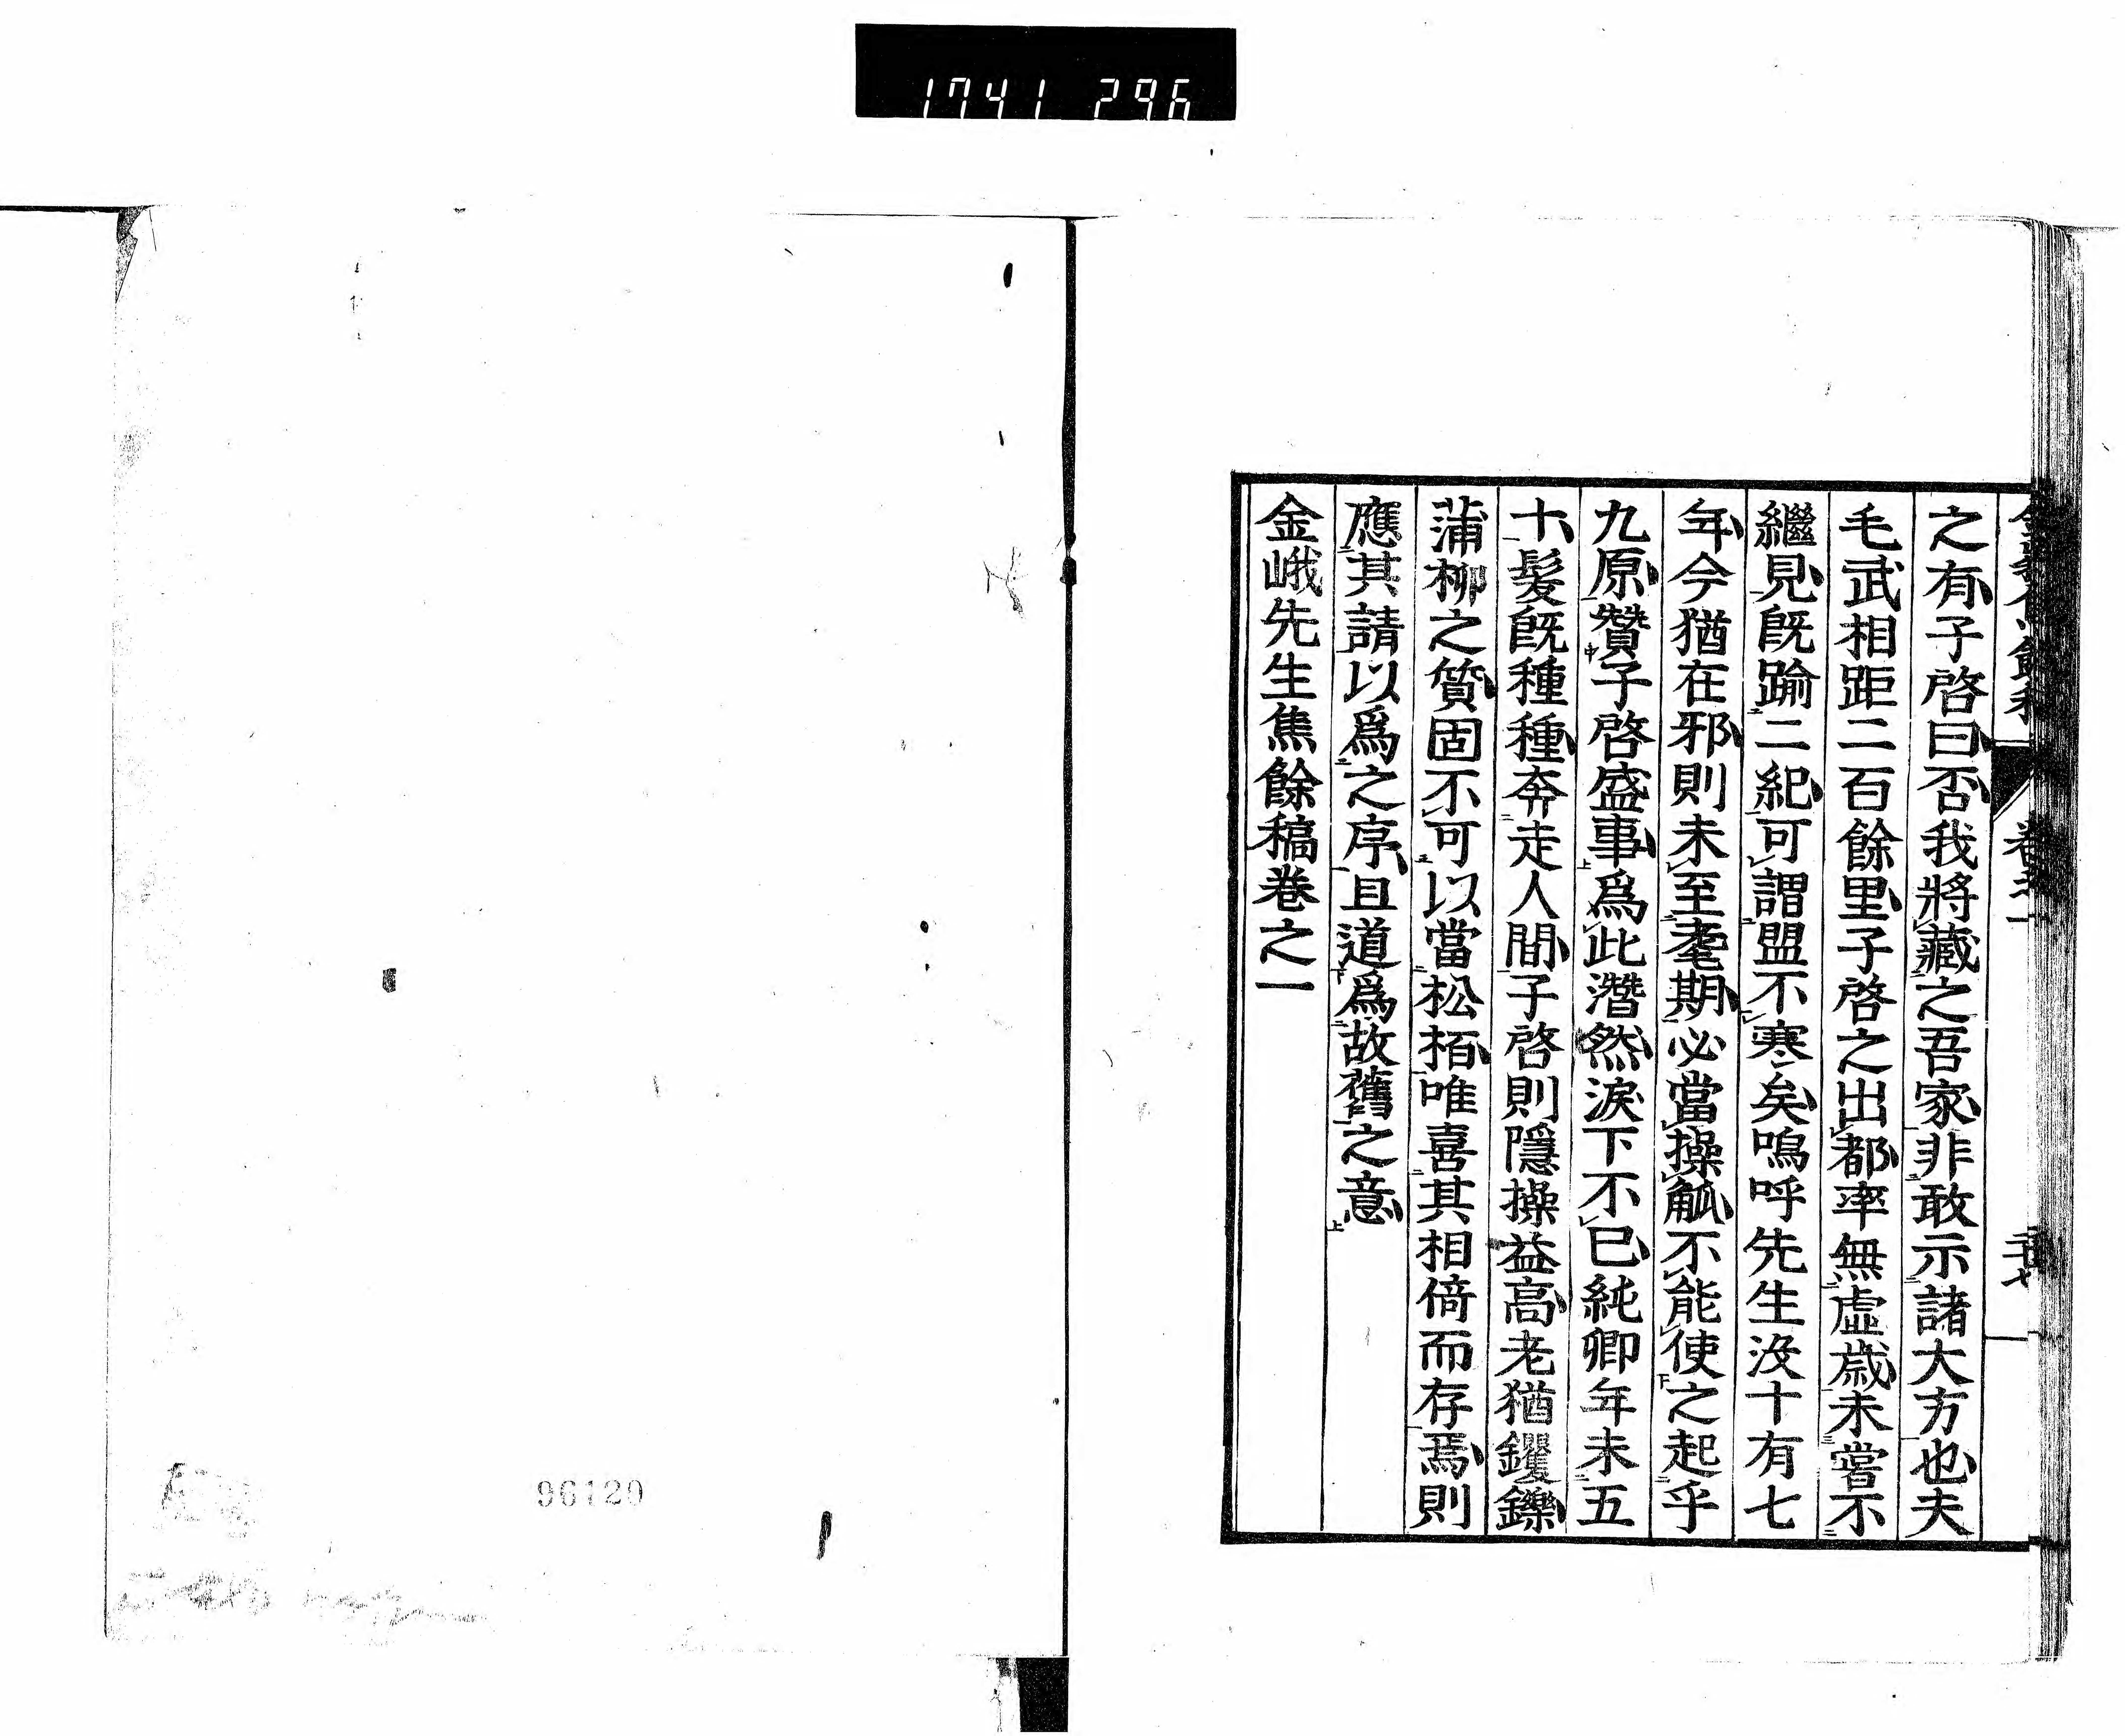 1741 296
之有子啓曰否我將藏之吾家非敢示諸大方也夫
毛武相距二百餘里子啓之出都率無虛歲未嘗不
繼見既踰二紀可謂盟不寒矣嗚呼先生没十有七
年今猶在邪則未至耄期必當操觚不能使之起乎
九原贊子啓盛事爲此潸然淚下不已純卿年未五
十髮既種種奔走人間子啓則隱操益高老猶钁鑠
蒲柳之質固不可以當松栢唯喜其相倚而存焉則
應其請以爲之序且道爲故舊之意
金峨先生焦餘稿卷之一
96120